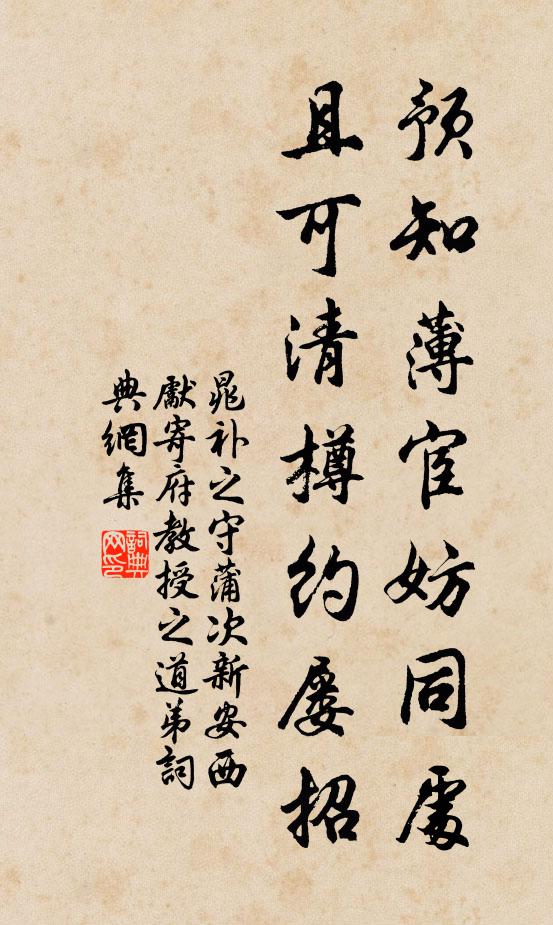 預知薄宦妨同處
且可清樽約屡招
晁补之守蒲次新安西
獻寄府教授之道弟詞
典網集
詞典网印